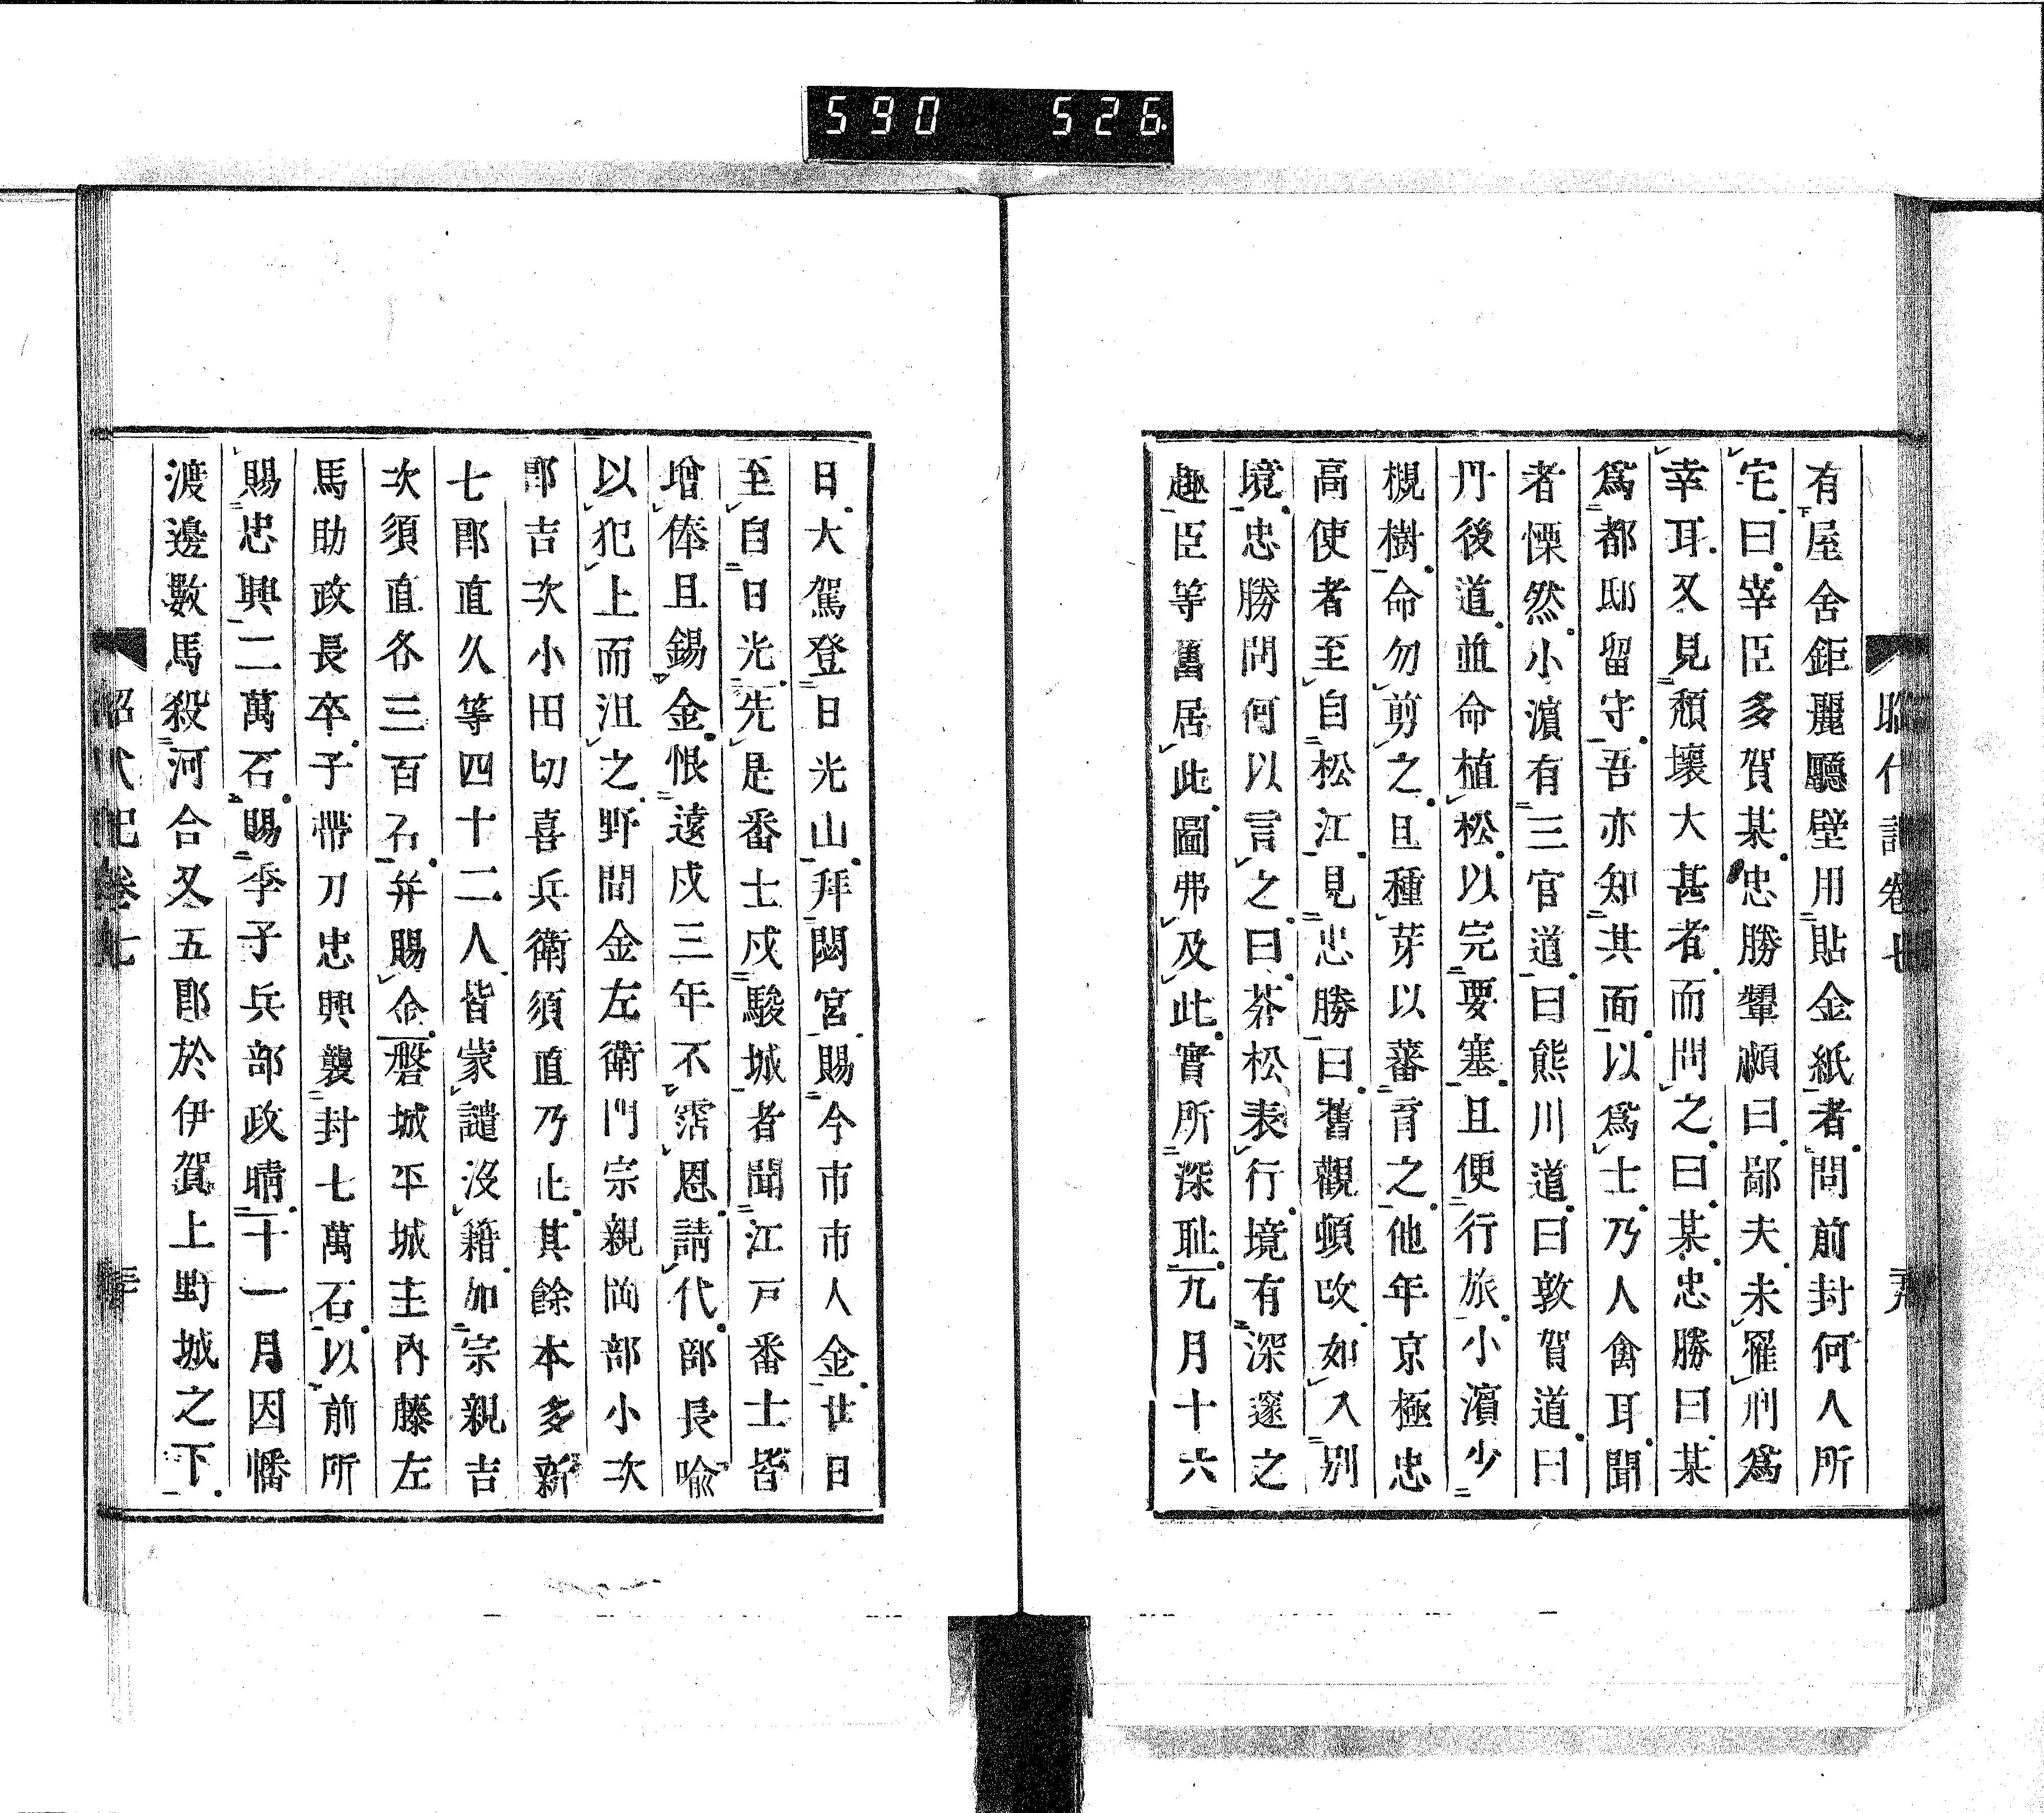 590 526
昭代記卷七
有屋舍鉅麗廳壁用貼金紙者問前封何人所
宅曰宰臣多賀某忠勝顰顣曰鄙夫未罹刑爲
幸耳又見頽壞大甚者而問之曰某忠勝曰某
爲都邸留守吾亦知其面以爲士乃人禽耳聞
者慄然小濵有三官道曰熊川道曰敦賀道曰
丹後道並命植松以完要塞且便行旅小濵少
槻樹命勿剪之且種芽以蕃育之他年京極忠
高使者至自松江見忠勝曰舊觀頓改如入別
境忠勝問何以言之曰茶松表行境有深邃之
趣臣等舊居此圖弗及此實所深耻九月十六
日大駕登日光山拜閟宮賜今市市人金廿日
至自日光先是番士戍駿城者聞江戸番士皆
增俸且錫金恨遠戍三年不霑恩請代部長喩
以犯上而沮之野間金左衛門宗親岡部小次
郎吉次小田切喜兵衛須直乃止其餘本多新
七郎直久等四十二人皆蒙譴沒籍加宗親吉
次須直各三百石并賜金磐城平城主內藤左
馬助政長卒子帶刀忠興襲封七萬石以前所
賜忠興二萬石賜季子兵部政晴十一月因幡
渡邊數馬殺河合又五郎於伊賀上野城之下
昭代記卷七